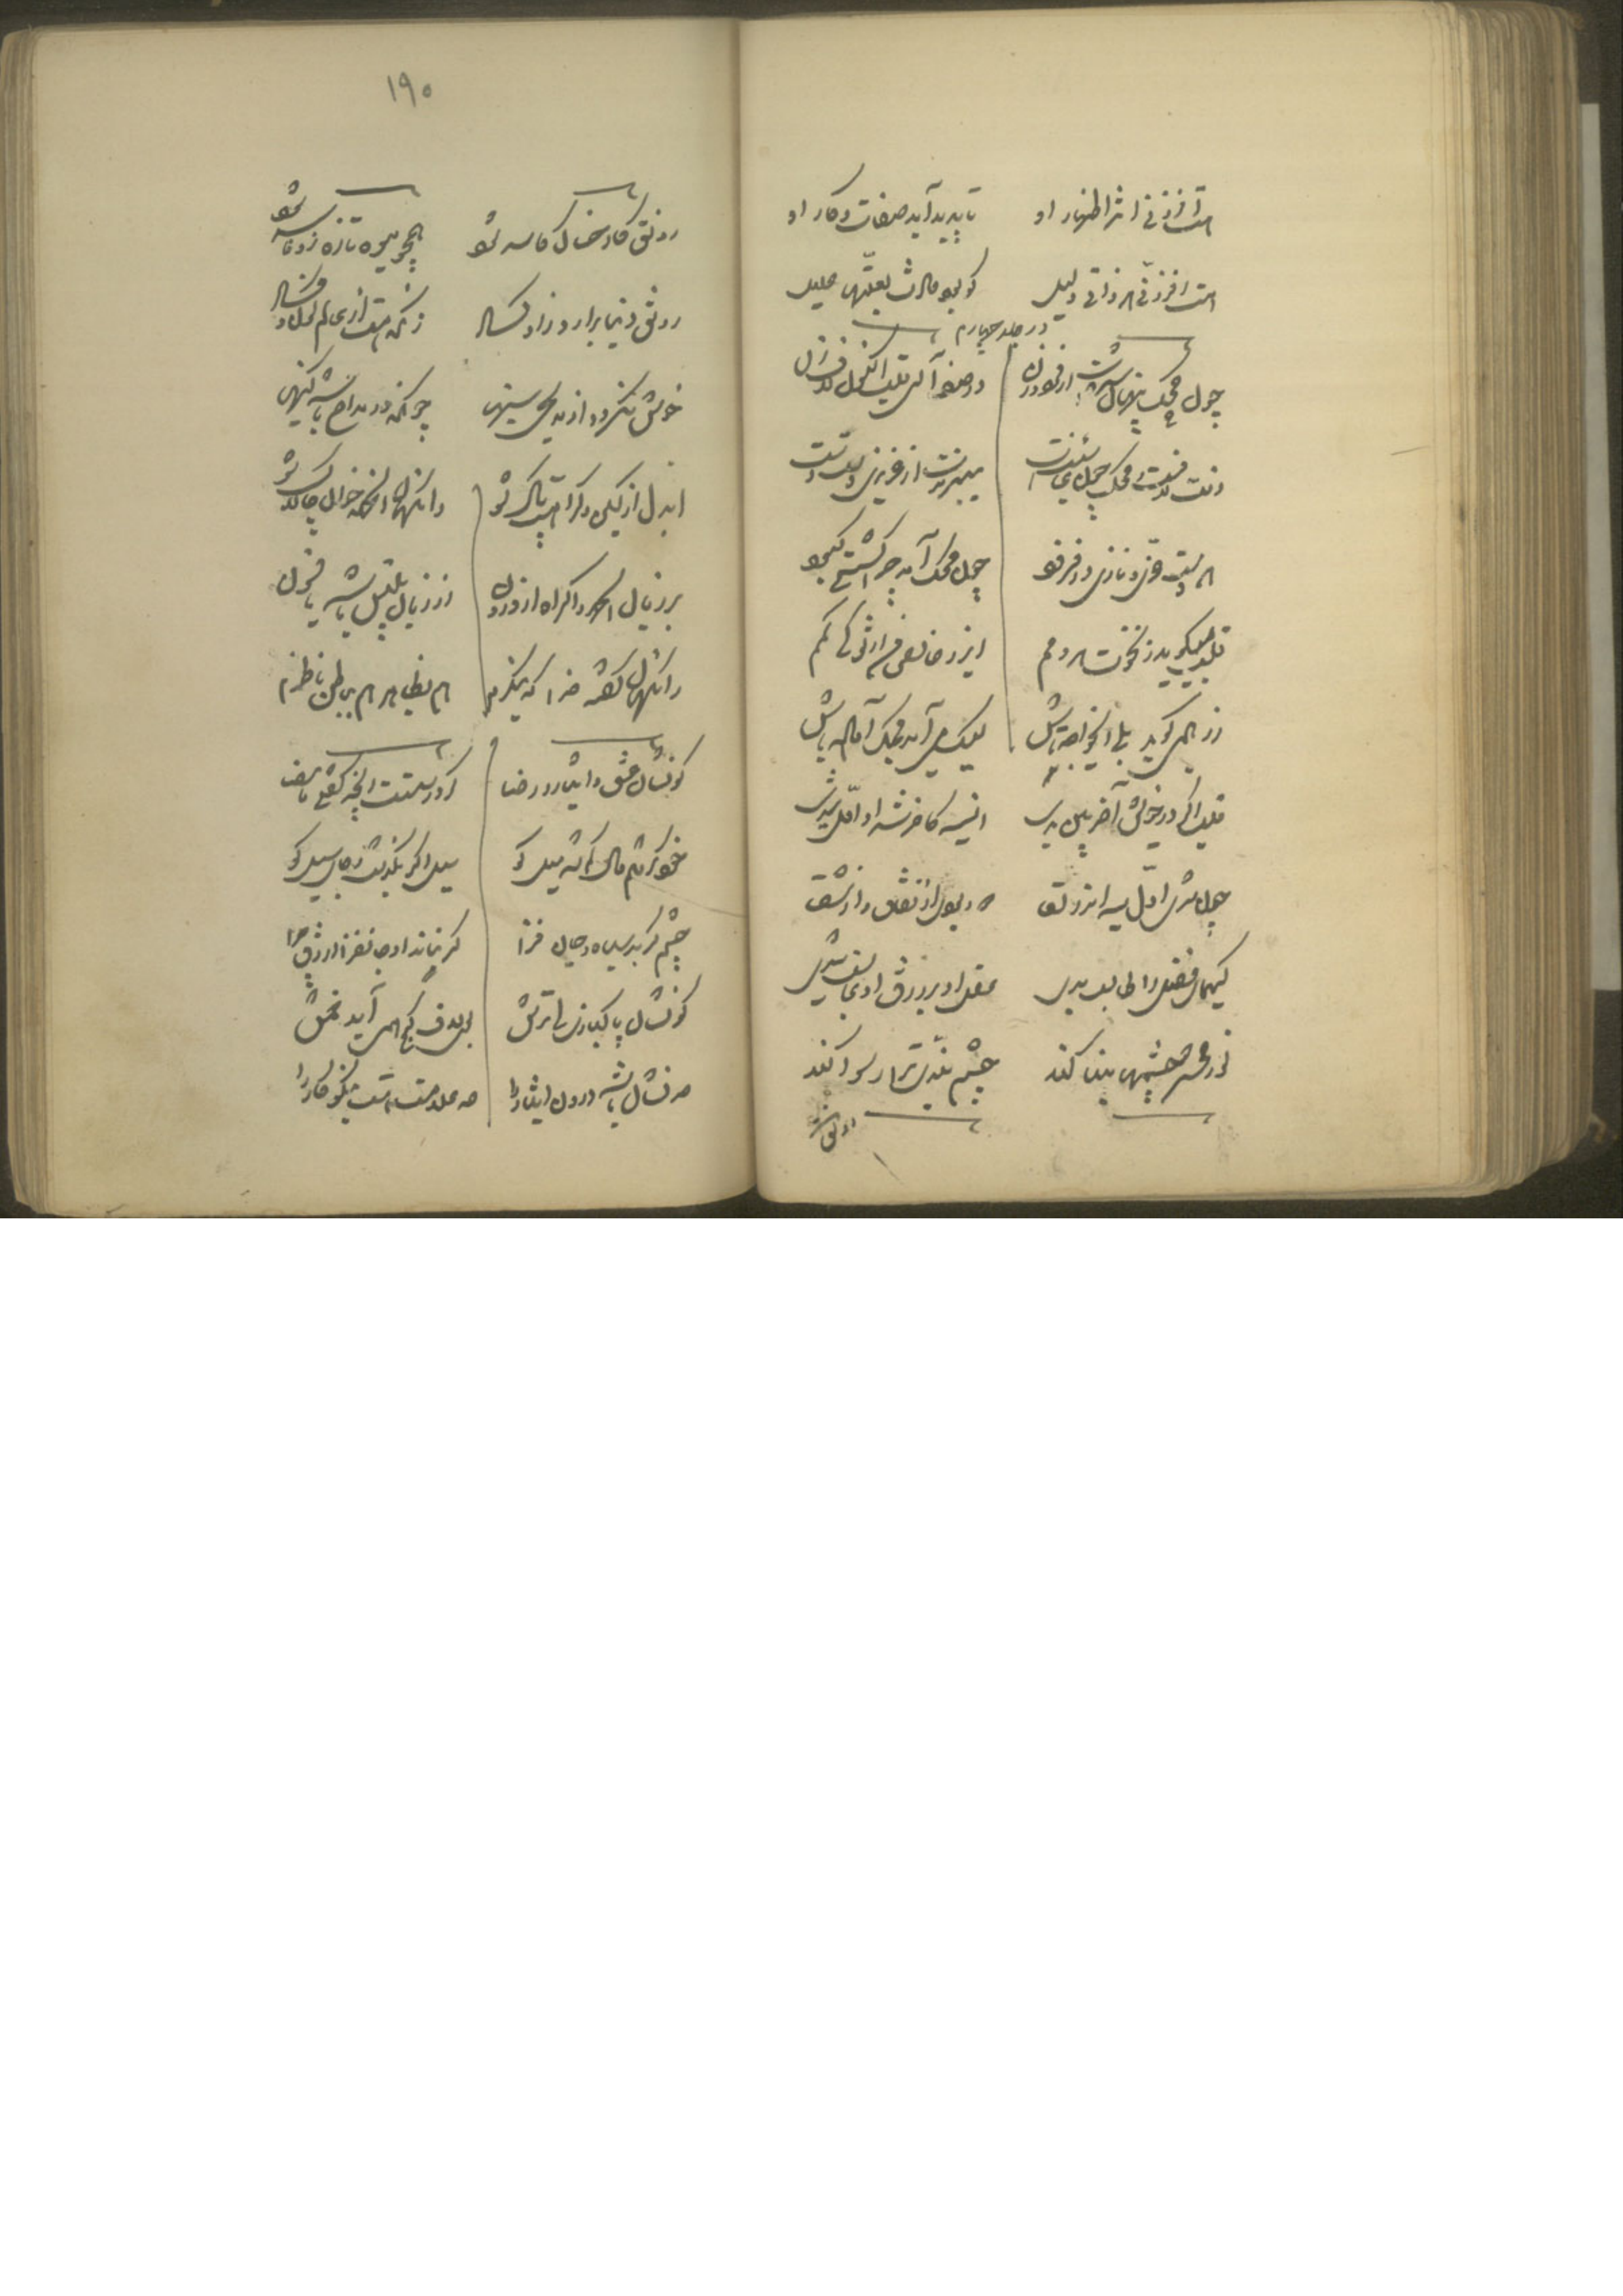 هست افزونی اثر اظهار او تا پدید آید صفات و کار او
هست افزونی هر ذاتی دلیل کو بود حادث بعلتها علیل
در جلد چهارم
چون محک پنهان شدست از مرد و زن در صف آ ای قلب و اکنون لاف زن
وقت لافستت محک چون غایبست میبرندت از عزیزی دست دست
هر دمت عزی و نازی در فزود چون محک آمد چرا گشتی کبود
قلب میگوید ز نخوت هر دمم ای زر خالص من از تو کی کمم
زر همی گوید بلی ای خواجه تاش لیک می آید محک آماده باش
قلب اگر در خویش آخر بین بدی آن سیه کاخر شد او اول شدی
چون شدی اول سیه اندر لقا دور بودی از نفاق و از شقا
کیمیای فضل را طالب بدی عقل او بر زرق او غالب بدی
نور محشر چشمشان بینا کند چشم بندی ترا رسوا کند
رونق
۱۹۰
رونق کار خسان کاسد شود همچو میوه تازه زود فاسد شود
رونق دنیا برارد زو کساد زانکه هست از عالم کون و فساد
خوش نگردد از مدیحی سینها چونکه در مداح باشد کینها
ای دل از کین و کراهت پاک شو وانگهان الحمد خوان چالاک شو
بر زبان الحمد و اکراه از درون از زبان تلبیس باشد یا فسون
وانگهان گفته خدا که ننگرم من بظاهر من بباطن ناظرم
کو نشان عشق و ایثار و رضا گر درستست آنچه گفتی ما مضی
خود گرفتم مال کم شد میل کو سیل اگر بگذشت جای سیل کو
چشم گر بد سیاه و جان فزا گر نماند او جانفزا ازرق چرا
کو نشان پاکبازی ای ترش بوی لاف کج همی آید خمش
صد نشان باشد درون ایثار را صد علامت هست نیکوکار را